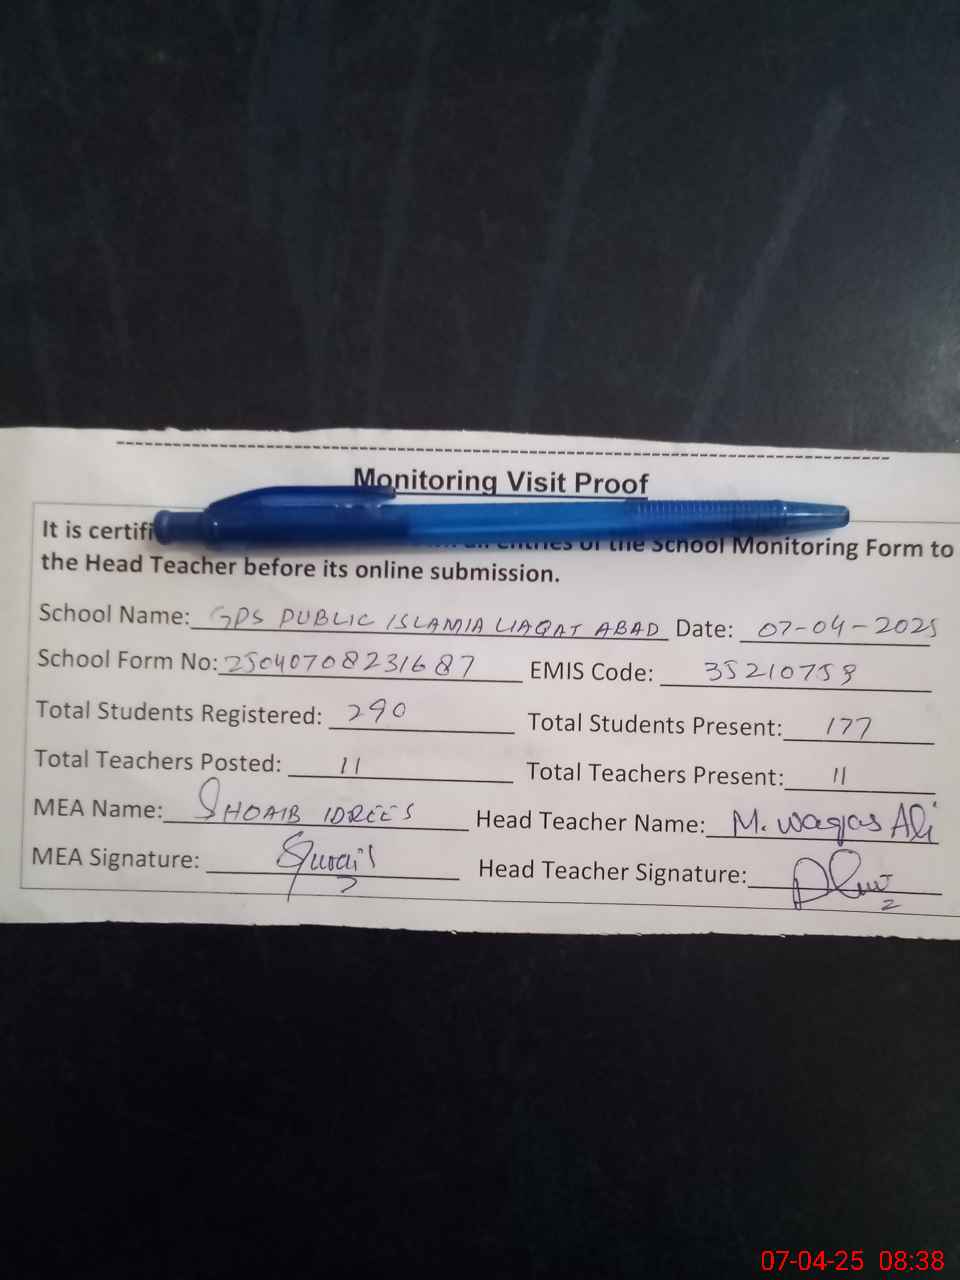 Monitoring Visit Proof
It is certifi entries of the School Monitoring Form to
the Head Teacher before its online submission.
School Name: GPS PUBLIC ISLAMIA LIAQAT ABAD Date: 07-04-2025
School Form No: 25040708231687 EMIS Code: 35210759
Total Students Registered: 290 Total Students Present: 177
Total Teachers Posted: 11 Total Teachers Present: 11
MEA Name: SHOAIB IDREES Head Teacher Name: M. Waqas Ali
MEA Signature: Head Teacher Signature:
07-04-25 08:38